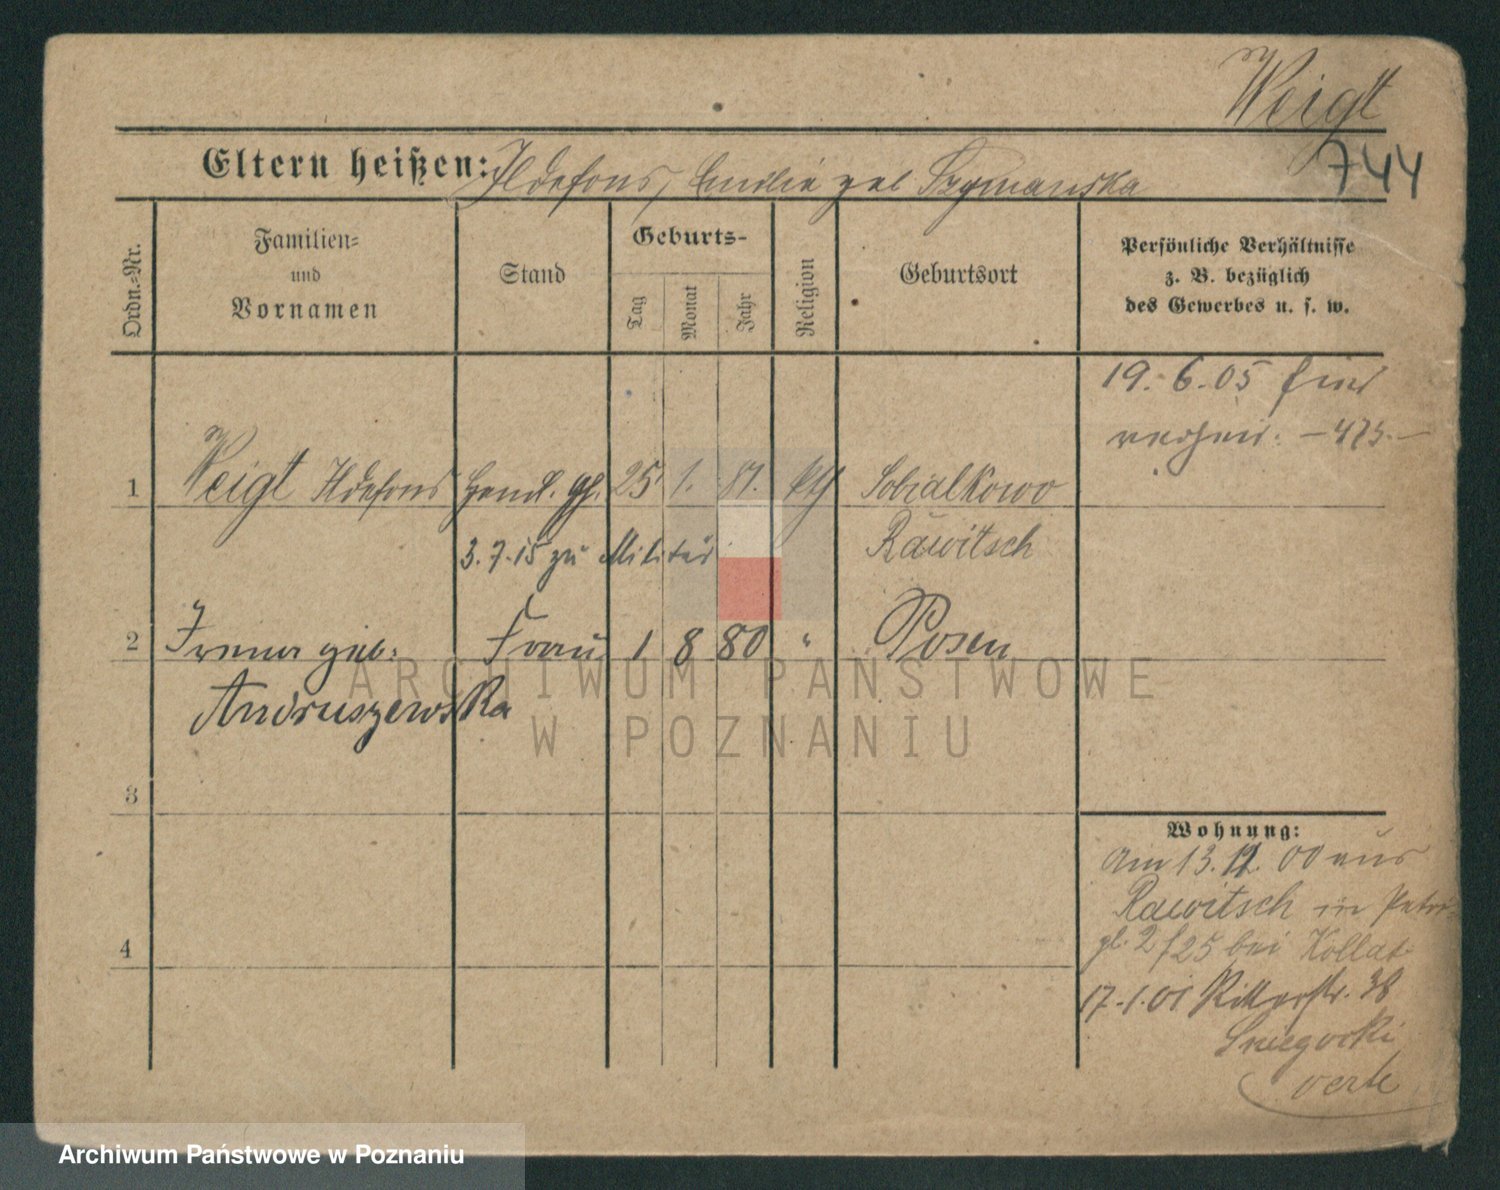 Weigt
744
Eltern heißen: Ildefons, Emilie geb Szymanska
Ordn.=Nr.
Familien=
und
Vornamen
Stand
Geburts-
Tag
Monat
Jahr
Religion
Geburtsort
Persönliche Verhältnisse
z. B. bezüglich
des Gewerbes u. s. w.
19.6.05
- 475.-
1 Weigt Ildefons Handl. Gh. 25 1. 81. kth Sobialkowo
3.7.15 zu Militär Rawitsch
2 Irena geb. Frau 1 8 80 " Posen
Andruszewska
3
4
Wohnung:
Am 13. 12. 00 aus
Rawitsch in Petri
pl. 2 f 25 bei Kollat
17.1.01 Ritterstr. 38
Sniegocki
verte
ARCHIWUM PAŃSTWOWE
W POZNANIU
Archiwum Państwowe w Poznaniu